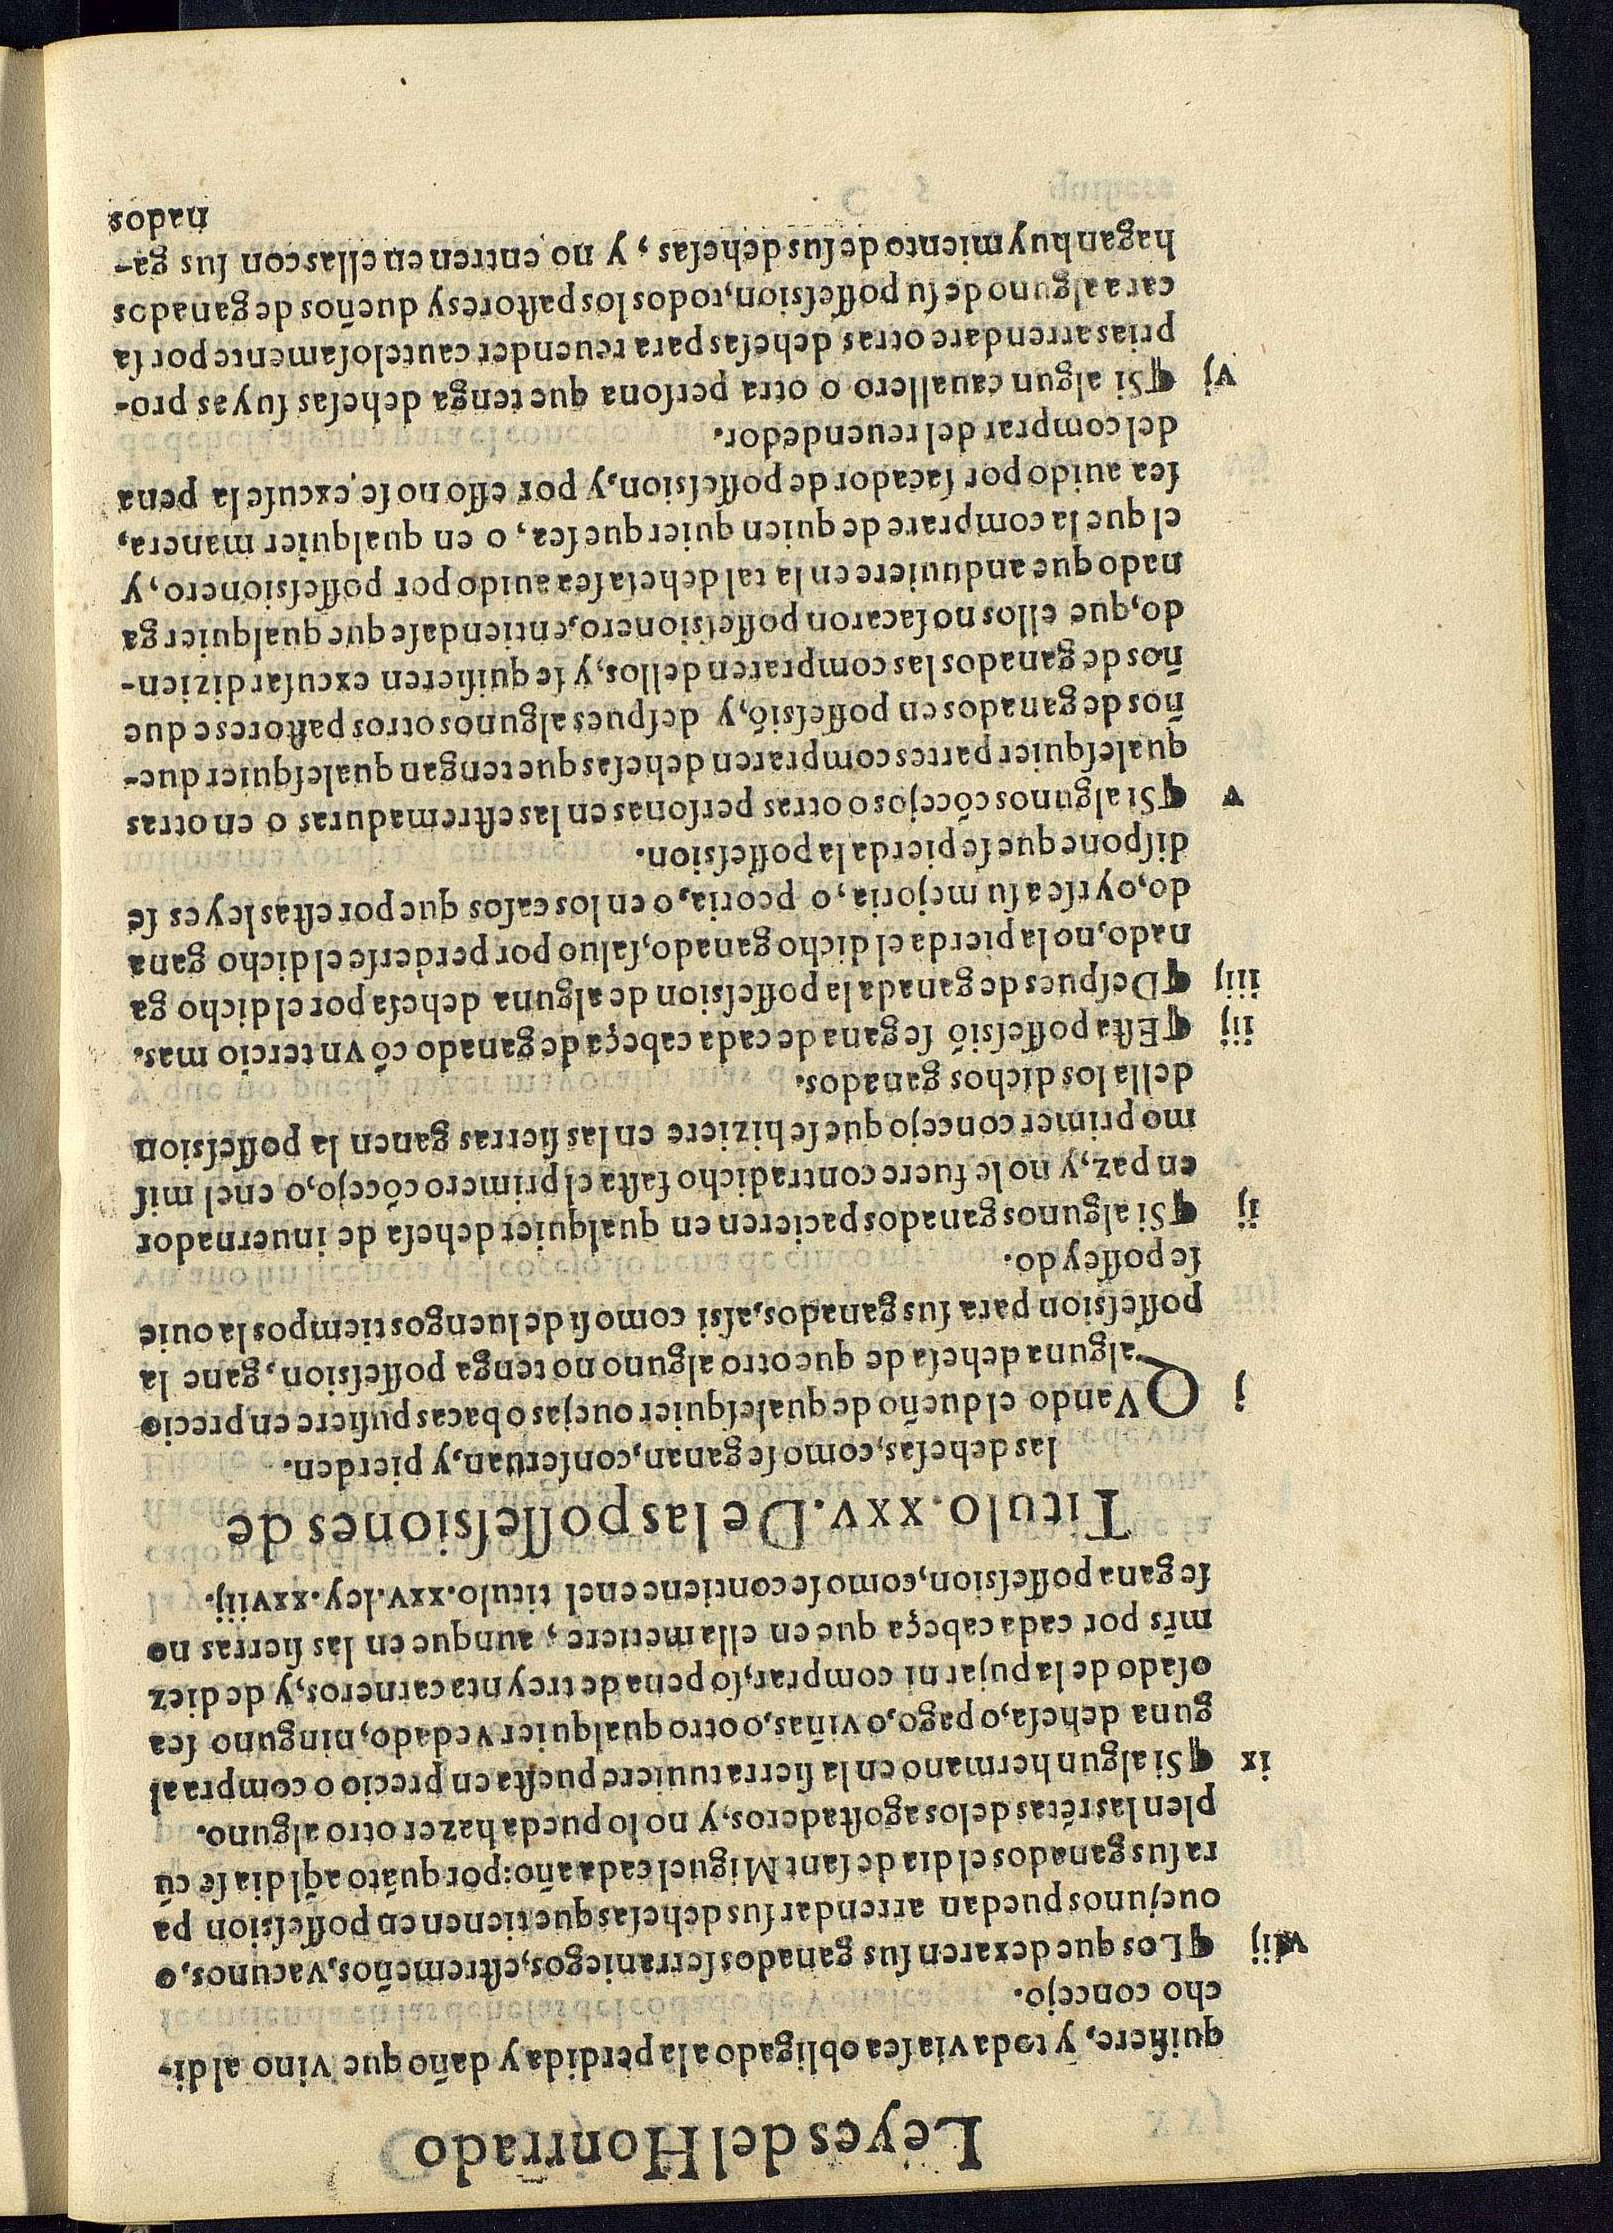 Leyes del Honrrado
quiſiere, y toda via ſea obligado a la perdida y daño que vino al di-
cho concejo.
viij ¶Los que dexaren ſus ganados ſerraniegos, eſtremeños, vacunos, o
ouejunos puedan arrendar ſus deheſas que tienen en poſſeſsion pa
ra ſus ganados el dia de ſant Miguel cada año: por quãto aq̃l dia ſe cũ
plen las rẽtas de los agoſtaderos, y no lo pueda hazer otro alguno.
ix ¶Si algun hermano en la ſierra tuuiere pueſta en precio o compra al
guna deheſa, o pago, o viñas, o otro qualquier vedado, ninguno ſea
oſado de la pujar ni comprar, ſo pena de treynta carneros, y de diez
mr̃s por cada cabeça que en ella metiere, aunque en las ſierras no
ſe gana poſſeſsion, como ſe contiene en el titulo. xxv. ley. xxviij.
Titulo. xxv. De las poſſeſsiones de
las deheſas, como ſe ganan, conſeruan, y pierden.
j QVando el dueño de qualeſquier ouejas o bacas puſiere en precio
alguna deheſa de que otro alguno no tenga poſſeſsion, gane la
poſſeſsion para ſus ganados, aſsi como ſi de luengos tiempos la ouie
ſe poſſeydo.
ij ¶Si algunos ganados pacieren en qualquier deheſa de inuernador
en paz, y no le fuere contradicho faſta el primero cõcejo, o en el miſ
mo primer concejo que ſe hiziere en las ſierras ganen la poſſeſsion
della los dichos ganados.
iij ¶Eſta poſſeſsiõ ſe gana de cada cabeça de ganado cõ vn tercio mas.
iiij ¶Deſpues de ganada la poſſeſsion de alguna deheſa por el dicho ga
nado, no la pierda el dicho ganado, ſaluo por perderſe el dicho gana
do, o yrſe a ſu mejoria, o peoria, o en los caſos que por eſtas leyes ſe
diſpone que ſe pierda la poſſeſsion.
v ¶Si algunos cõcejos o otras perſonas en las eſtremaduras o en otras
qualeſquier partes compraren deheſas que tengan qualeſquier due-
ños de ganados en poſſeſsiõ, y deſpues algunos otros paſtores e due
ños de ganados las compraren dellos, y ſe quiſieren excuſar dizien-
do, que ellos no ſacaron poſſeſsionero, entiendaſe que qualquier ga
nado que anduuiere en la tal deheſa ſea auido por poſſeſsionero, y
el que la comprare de quien quier que ſea, o en qualquier manera,
ſea auido por ſacador de poſſeſsion, y por eſſo no ſe excuſe la pena
del comprar del reuendedor.
vj ¶Si algun cauallero o otra perſona que tenga deheſas ſuyas pro-
prias arrendare otras deheſas para reuender cautelosamente por ſa
car a alguno de ſu poſſeſsion, todos los paſtores y dueños de ganados
hagan huymiento de ſus deheſas, y no entren en ellas con ſus ga-
nados